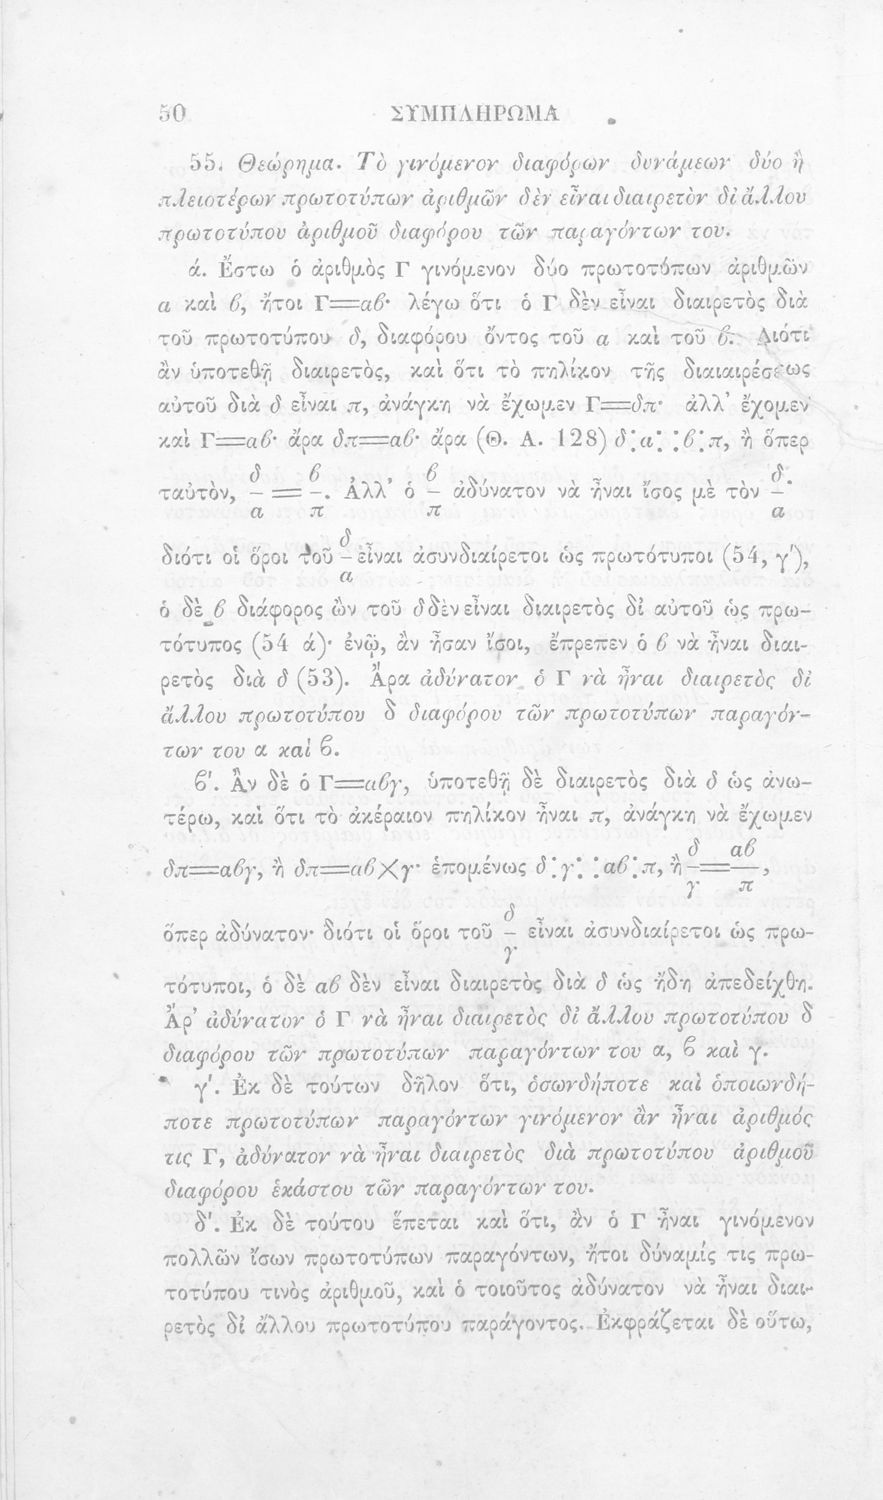 50 ΣΥΜΠΛΗΡΩΜΑ
55. Θεώρημα. Τὸ γινόμενον διαφόρων δυνάμεων δύο ἢ
πλειοτέρων πρωτοτύπων ἀριθμῶν δὲν εἶναι διαιρετὸν δι ἄλλου
πρωτοτύπου ἀριθμοῦ διαφόρου τῶν παραγόντων του.
ά. Ἔστω ὁ ἀριθμὸς Γ γινόμενον δύο πρωτοτύπων ἀριθμῶν
α καὶ β, ἤτοι Γ=αβ· λέγω ὅτι ὁ Γ δὲν εἶναι διαιρετὸς διὰ
τοῦ πρωτοτύπου δ, διαφόρου ὄντος τοῦ α καὶ τοῦ β. Διότι
ἂν ὑποτεθῇ διαιρετὸς, καὶ ὅτι τὸ πηλίκον τῆς διαιαιρέσεως
αὐτοῦ διὰ δ εἶναι π, ἀνάγκη νὰ ἔχωμεν Γ=δπ· ἀλλ' ἔχομεν
καὶ Γ=αβ· ἄρα δπ=αβ· ἄρα (Θ. Α. 128) δ:α::β:π, ἢ ὅπερ
ταὐτὸν, δ/α = β/π. Ἀλλ' ὁ β/π ἀδύνατον νὰ ἦναι ἴσος μὲ τὸν δ/α·
διότι οἱ ὅροι τοῦ δ/α εἶναι ἀσυνδιαίρετοι ὡς πρωτότυποι (54, γ'),
ὁ δὲ β διάφορος ὢν τοῦ δ δὲν εἶναι διαιρετὸς δἰ αὐτοῦ ὡς πρω-
τότυπος (54 ά)· ἐνῷ, ἂν ἦσαν ἴσοι, ἔπρεπεν ὁ β νὰ ἦναι διαι-
ρετὸς διὰ δ (53). Ἄρα ἀδύνατον ὁ Γ νὰ ἦναι διαιρετὸς δἰ
ἄλλου πρωτοτύπου δ διαφόρου τῶν πρωτοτύπων παραγόν-
των του α καὶ β.
β'. Ἂν δὲ ὁ Γ=αβγ, ὑποτεθῇ δὲ διαιρετὸς διὰ δ ὡς ἀνω-
τέρω, καὶ ὅτι τὸ ἀκέραιον πηλίκον ἦναι π, ἀνάγκη νὰ ἔχωμεν
δπ=αβγ, ἢ δπ=αβ×γ· ἑπομένως δ:γ::αβ:π, ἢ δ/γ=αβ/π,
ὅπερ ἀδύνατον· διότι οἱ ὅροι τοῦ δ/γ εἶναι ἀσυνδιαίρετοι ὡς πρω-
τότυποι, ὁ δὲ αβ δὲν εἶναι διαιρετὸς διὰ δ ὡς ἤδη ἀπεδείχθη.
Ἄρ' ἀδύνατον ὁ Γ νὰ ἦναι διαιρετὸς δἰ ἄλλου πρωτοτύπου δ
διαφόρου τῶν πρωτοτύπων παραγόντων του α, β καὶ γ.
γ'. Ἐκ δὲ τούτων δῆλον ὅτι, ὁσωνδήποτε καὶ ὁποιωνδή-
ποτε πρωτοτύπων παραγόντων γινόμενον ἂν ἦναι ἀριθμός
τις Γ, ἀδύνατον νὰ ἦναι διαιρετὸς διὰ πρωτοτύπου ἀριθμοῦ
διαφόρου ἑκάστου τῶν παραγόντων του.
δ'. Ἐκ δὲ τούτου ἕπεται καὶ ὅτι, ἂν ὁ Γ ἦναι γινόμενον
πολλῶν ἴσων πρωτοτύπων παραγόντων, ἤτοι δύναμίς τις πρω-
τοτύπου τινὸς ἀριθμοῦ, καὶ ὁ τοιοῦτος ἀδύνατον νὰ ἦναι διαι-
ρετὸς δἰ ἄλλου πρωτοτύπου παράγοντος. Ἐκφράζεται δὲ οὕτω,